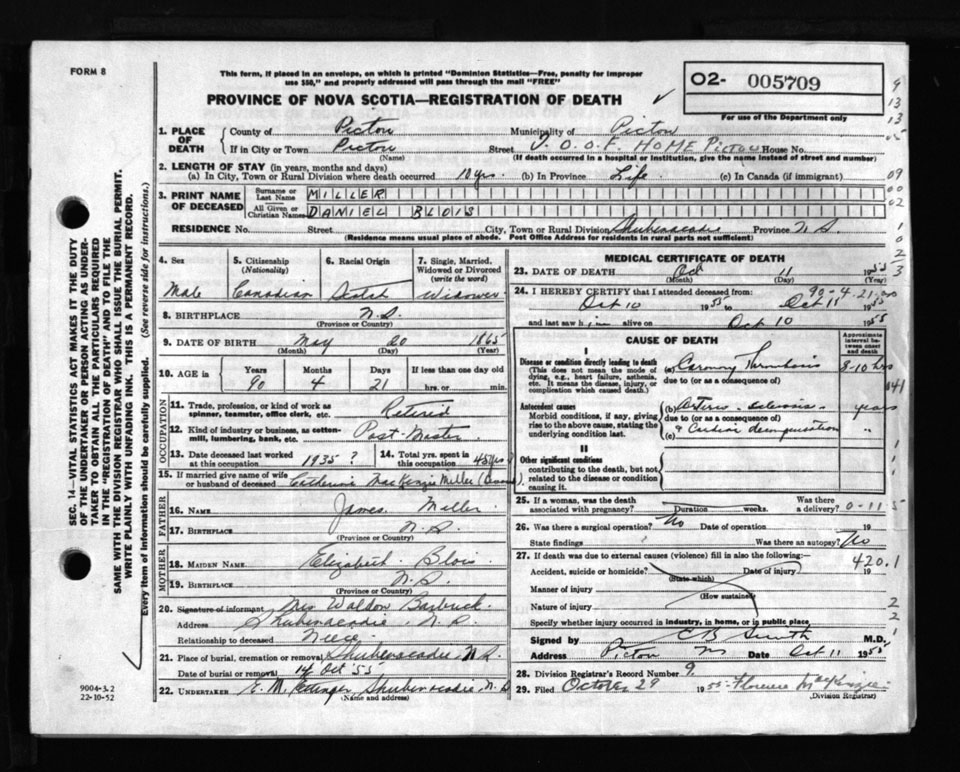 FORM 8
This form, if placed in an envelope, on which is printed "Dominion Statistics—Free, penalty for improper
use $50," and properly addressed will pass through the mail "FREE"
PROVINCE OF NOVA SCOTIA—REGISTRATION OF DEATH
O2- 005709
For use of the Department only
1. PLACE OF DEATH County of Pictou Municipality of Pictou
If in City or Town Pictou (Name) Street I. O. O. F. HOME Pictou House No.
(If death occurred in a hospital or institution, give the name instead of street and number)
2. LENGTH OF STAY (in years, months and days)
(a) In City, Town or Rural Division where death occurred 10 yrs. (b) In Province Life (c) In Canada (if immigrant)
3. PRINT NAME OF DECEASED Surname or Last Name MILLER
All Given or Christian Names DANIEL BLOIS
RESIDENCE No. Street City, Town or Rural Division Shubenacadie Province N S
(Residence means usual place of abode. Post Office Address for residents in rural parts not sufficient)
4. Sex Male
5. Citizenship (Nationality) Canadian
6. Racial Origin Scotch
7. Single, Married, Widowed or Divorced (write the word) Widower
8. BIRTHPLACE N.S. (Province or Country)
9. DATE OF BIRTH May (Month) 20 (Day) 1865 (Year)
10. AGE in Years 90 Months 4 Days 21 If less than one day old hrs. or min.
OCCUPATION
11. Trade, profession, or kind of work as spinner, teamster, office clerk, etc. Retired
12. Kind of industry or business, as cotton-mill, lumbering, bank, etc. Post-Master
13. Date deceased last worked at this occupation 1935 ?
14. Total yrs. spent in this occupation 45 yrs
15. If married give name of wife or husband of deceased Catherine MacKenzie Miller
FATHER
16. NAME James Miller
17. BIRTHPLACE N.S. (Province or Country)
MOTHER
18. MAIDEN NAME Elizabeth Blois
19. BIRTHPLACE N.S. (Province or Country)
20. Signature of informant Mrs Waldon
Address Shubenacadie, N.S.
Relationship to deceased Niece
21. Place of burial, cremation or removal Shubenacadie N S
Date of burial or removal 14 Oct 55
22. UNDERTAKER E. M. Ettinger, Shubenacadie, N.S
(Name and address)
MEDICAL CERTIFICATE OF DEATH
23. DATE OF DEATH Oct (Month) 11 (Day) 1955 (Year)
90-4-21
24. I HEREBY CERTIFY that I attended deceased from:
Oct 10 1955 to Oct 11 1955
and last saw him alive on Oct 10 1955
CAUSE OF DEATH
Approximate interval between onset and death
I
Disease or condition directly leading to death
(This does not mean the mode of dying, e.g., heart failure, asthenia, etc. It means the disease, injury, or complication which caused death.)
(a) Coronary Thrombosis 8-10 hrs
due to (or as a consequence of)
Antecedent causes
Morbid conditions, if any, giving rise to the above cause, stating the underlying condition last.
(b) Arterio-sclerosis years
due to (or as a consequence of)
(c) & Cardiac decompensation "
II
Other significant conditions
contributing to the death, but not related to the disease or condition causing it.
25. If a woman, was the death associated with pregnancy? Duration weeks. Was there a delivery?
26. Was there a surgical operation? No Date of operation 19
State findings Was there an autopsy? No
27. If death was due to external causes (violence) fill in also the following:—
420.1
Accident, suicide or homicide? (State which) Date of injury 19
Manner of injury (How sustained)
Nature of injury
Specify whether injury occurred in industry, in home, or in public place
Signed by C B Smith M.D.
Address Pictou NS Date Oct 11 1955
28. Division Registrar's Record Number 9
29. Filed October 29 1955 Florence MacKenzie
(Division Registrar)
SEC. 14—VITAL STATISTICS ACT MAKES IT THE DUTY
OF THE UNDERTAKER OR PERSON ACTING AS UNDER-
TAKER TO OBTAIN ALL THE PARTICULARS REQUIRED
IN THE "REGISTRATION OF DEATH" AND TO FILE THE
SAME WITH THE DIVISION REGISTRAR WHO SHALL ISSUE THE BURIAL PERMIT.
WRITE PLAINLY WITH UNFADING INK. THIS IS A PERMANENT RECORD.
Every item of information should be carefully supplied. (See reverse side for instructions.)
9004-3.2
22-10-52